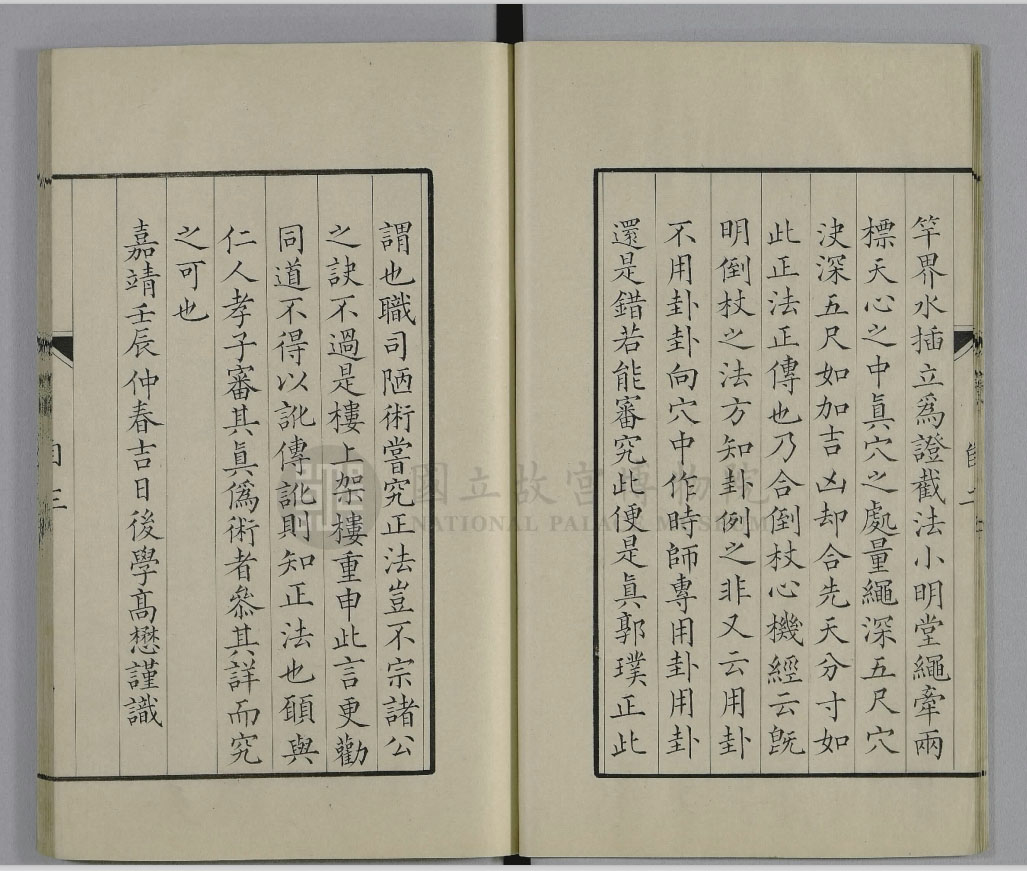 竿界水插立爲證截法小明堂繩牽兩
標天心之中眞穴之處量繩深五尺穴
决深五尺如加吉凶却合先天分寸如
此正法正傳也乃合倒杖心機經云旣
明倒杖之法方知卦例之非又云用卦
不用卦卦向穴中作時師專用卦用卦
還是錯若能審究此便是眞郭璞正此
謂也職司陋術嘗究正法豈不宗諸公
之訣不過是樓上架樓重申此言更勸
同道不得以訛傳訛則知正法也願與
仁人孝子審其眞僞術者叅其詳而究
之可也
嘉靖壬辰仲春吉日後學高懋謹識
國立故宮博物院
NATIONAL PALACE MUSEUM